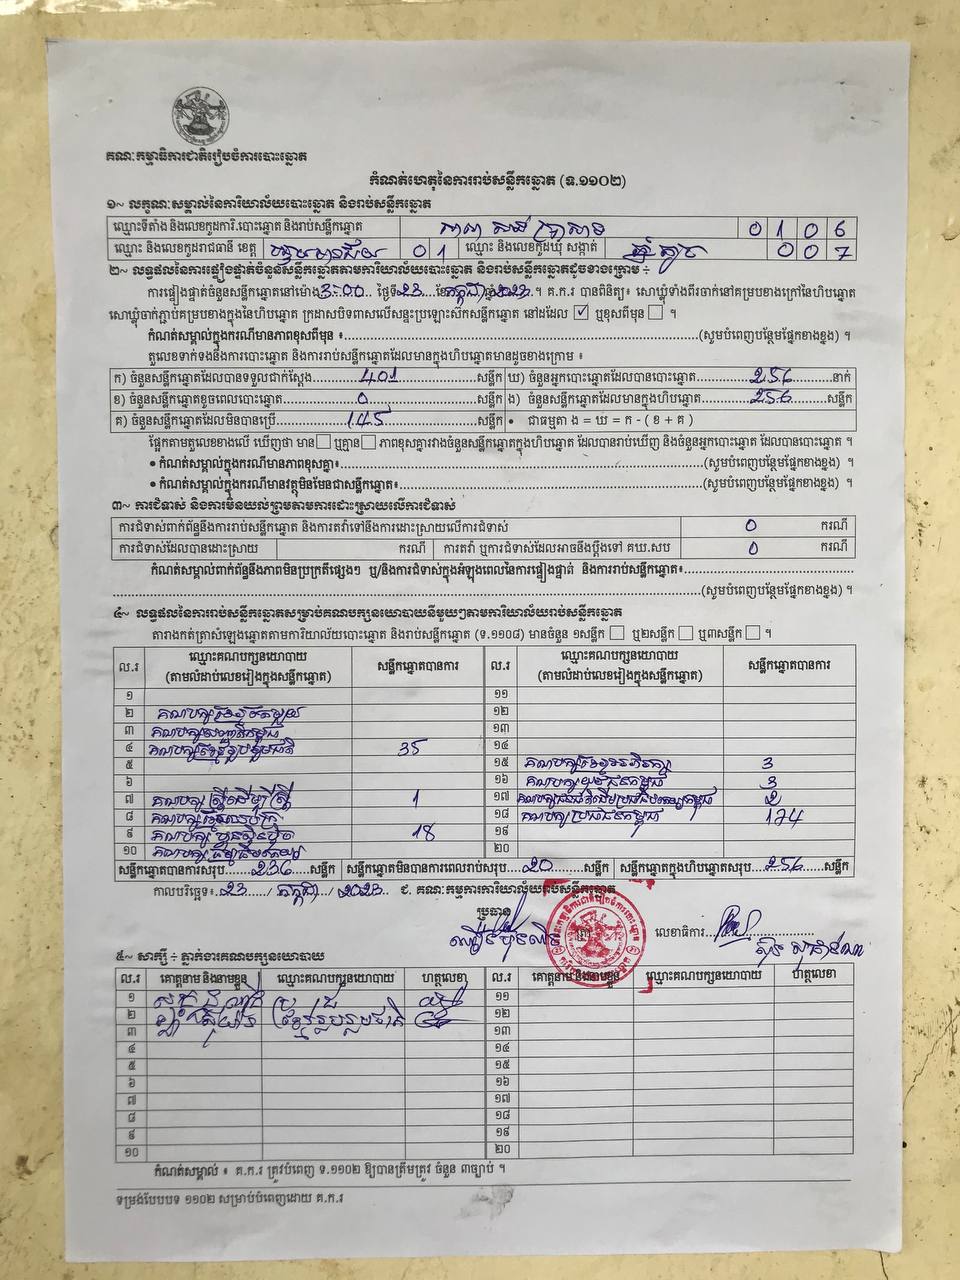 គណៈកម្មាធិការជាតិរៀបចំការបោះឆ្នោត
កំណត់ហេតុនៃការរាប់សន្លឹកឆ្នោត (ទ.១១០២)
១~ លក្ខណៈសម្គាល់នៃការិយាល័យបោះឆ្នោត និងរាប់សន្លឹកឆ្នោត
ឈ្មោះទីតាំង និងលេខកូដការិ.បោះឆ្នោត និងរាប់សន្លឹកឆ្នោត 0 1 0 6
ឈ្មោះ និងលេខកូដរាជធានី ខេត្ត បន្ទាយមានជ័យ 0 1 ឈ្មោះ និងលេខកូដឃុំ សង្កាត់ 0 0 7
២~ លទ្ធផលនៃការផ្ទៀងផ្ទាត់ចំនួនសន្លឹកឆ្នោតតាមការិយាល័យបោះឆ្នោត និងរាប់សន្លឹកឆ្នោតដូចខាងក្រោម ÷
ការផ្ទៀងផ្ទាត់ចំនួនសន្លឹកឆ្នោតនៅម៉ោង 3:00 ថ្ងៃទី 23 ខែ កក្កដា ឆ្នាំ 2023 ។ គ.ក.រ បានពិនិត្យ៖ សោឃ្លុំទាំងពីរចាក់នៅគម្របខាងក្រៅនៃហិបឆ្នោត
សោឃ្លុំចាក់ភ្ជាប់គម្របខាងក្នុងនៃហិបឆ្នោត ក្រដាសបិទពាសលើសន្ទះប្រឡោះស៊កសន្លឹកឆ្នោត នៅដដែល ☑ ឬខុសពីមុន ☐ ។
កំណត់សម្គាល់ក្នុងករណីមានភាពខុសពីមុន ៖ (សូមបំពេញបន្ថែមផ្នែកខាងខ្នង) ។
តួលេខទាក់ទងនឹងការបោះឆ្នោត និងការរាប់សន្លឹកឆ្នោតដែលមានក្នុងហិបឆ្នោតមានដូចខាងក្រោម ៖
ក) ចំនួនសន្លឹកឆ្នោតដែលបានទទួលជាក់ស្តែង 401 សន្លឹក ឃ) ចំនួនអ្នកបោះឆ្នោតដែលបានបោះឆ្នោត 256 នាក់
ខ) ចំនួនសន្លឹកឆ្នោតខូចពេលបោះឆ្នោត 0 សន្លឹក ង) ចំនួនសន្លឹកឆ្នោតដែលមានក្នុងហិបឆ្នោត 256 សន្លឹក
គ) ចំនួនសន្លឹកឆ្នោតដែលមិនបានប្រើ 145 សន្លឹក • ជាធម្មតា ង = ឃ = ក - ( ខ + គ )
ផ្អែកតាមតួលេខខាងលើ ឃើញថា មាន ☐ ឬគ្មាន ☐ ភាពខុសគ្នារវាងចំនួនសន្លឹកឆ្នោតក្នុងហិបឆ្នោត ដែលបានរាប់ឃើញ និងចំនួនអ្នកបោះឆ្នោត ដែលបានបោះឆ្នោត ។
• កំណត់សម្គាល់ក្នុងករណីមានភាពខុសគ្នា៖ (សូមបំពេញបន្ថែមផ្នែកខាងខ្នង) ។
• កំណត់សម្គាល់ក្នុងករណីមានវត្ថុមិនមែនជាសន្លឹកឆ្នោត៖ (សូមបំពេញបន្ថែមផ្នែកខាងខ្នង) ។
៣~ ការជំទាស់ និងការមិនយល់ព្រមតាមការដោះស្រាយលើការជំទាស់
ការជំទាស់ពាក់ព័ន្ធនឹងការរាប់សន្លឹកឆ្នោត និងការតវ៉ាទៅនឹងការដោះស្រាយលើការជំទាស់ 0 ករណី
ការជំទាស់ដែលបានដោះស្រាយ ករណី ការតវ៉ា ឬការជំទាស់ដែលអាចនឹងប្តឹងទៅ គឃ.សប 0 ករណី
កំណត់សម្គាល់ពាក់ព័ន្ធនឹងភាពមិនប្រក្រតីផ្សេងៗ ឬ/និងការជំទាស់ក្នុងអំឡុងពេលនៃការផ្ទៀងផ្ទាត់ និងការរាប់សន្លឹកឆ្នោត៖
(សូមបំពេញបន្ថែមផ្នែកខាងខ្នង) ។
៤~ លទ្ធផលនៃការរាប់សន្លឹកឆ្នោតសម្រាប់គណបក្សនយោបាយនីមួយៗតាមការិយាល័យរាប់សន្លឹកឆ្នោត
តារាងកត់ត្រាសំឡេងឆ្នោតតាមការិយាល័យបោះឆ្នោត និងរាប់សន្លឹកឆ្នោត (ទ.១១០៨) មានចំនួន ១សន្លឹក ☐ ឬ២សន្លឹក ☐ ឬ៣សន្លឹក ☐ ។
ល.រ ឈ្មោះគណបក្សនយោបាយ (តាមលំដាប់លេខរៀងក្នុងសន្លឹកឆ្នោត) សន្លឹកឆ្នោតបានការ ល.រ ឈ្មោះគណបក្សនយោបាយ (តាមលំដាប់លេខរៀងក្នុងសន្លឹកឆ្នោត) សន្លឹកឆ្នោតបានការ
១ ១១
២ គណបក្សខ្មែរតែមួយ ១២
៣ ១៣
៤ គណបក្សខ្មែររួបរួមជាតិ 35 ១៤
៥ ១៥ 3
៦ ១៦ គណបក្សយុវជនកម្ពុជា 3
៧ គណបក្សស្ត្រីដើម្បីស្ត្រី 1 ១៧ 2
៨ ១៨ គណបក្សប្រជាជនកម្ពុជា 174
៩ គណបក្សហ៊្វុនស៊ិនប៉ិច 18 ១៩
១០ គណបក្សធម្មាធិបតេយ្យ ២០
សន្លឹកឆ្នោតបានការសរុប 236 សន្លឹក សន្លឹកឆ្នោតមិនបានការពេលរាប់សរុប 20 សន្លឹក សន្លឹកឆ្នោតក្នុងហិបឆ្នោតសរុប 256 សន្លឹក
កាលបរិច្ឆេទ៖ 23 / កក្កដា / 2023 ជ. គណៈកម្មការការិយាល័យរាប់សន្លឹកឆ្នោត
ប្រធាន
លេខាធិការ
៥~ សាក្សី ÷ ភ្នាក់ងារគណបក្សនយោបាយ
ល.រ គោត្តនាម និងនាមខ្លួន ឈ្មោះគណបក្សនយោបាយ ហត្ថលេខា ល.រ គោត្តនាម និងនាមខ្លួន ឈ្មោះគណបក្សនយោបាយ ហត្ថលេខា
១ ១១
២ ខ្មែររួបរួមជាតិ ១២
៣ ១៣
៤ ១៤
៥ ១៥
៦ ១៦
៧ ១៧
៨ ១៨
៩ ១៩
១០ ២០
កំណត់សម្គាល់ ៖ គ.ក.រ ត្រូវបំពេញ ទ.១១០២ ឱ្យបានត្រឹមត្រូវ ចំនួន ៣ច្បាប់ ។
ទម្រង់បែបបទ ១១០២ សម្រាប់បំពេញដោយ គ.ក.រ